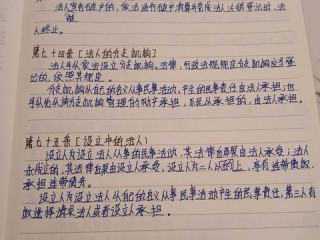 法人宣告破产的,依法进行破产清算并完成法人注销登记时,法
人终止。
第七十四条[法人的分支机构]
法人可以依法设立分支机构。法律、行政法规规定分支机构应当登
记的,依照其规定。
分支机构以自己的名义从事民事活动,产生的民事责任由法人承担;也
可以先以该分支机构管理的财产承担,不足以承担的,由法人承担。
第七十五条[设立中的法人]
设立人为设立法人从事的民事活动,其法律后果由法人承受;法人
未成立的,其法律后果由设立人承受,设立人为二人以上的,享有连带债权,
承担连带债务。
设立人为设立法人以自己的名义从事民事活动产生的民事责任,第三人有
权选择请求法人或者设立人承担。